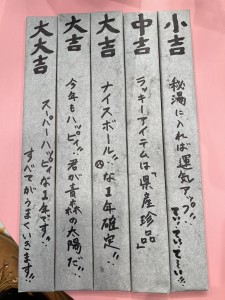 小吉
秘湯に入れば運気アップ!!
てってってーい!!
中吉
ラッキーアイテムは「県産珍品」
大吉
ナイスボール!!な1年確定!!
大吉
今年もハッピィ!!君が青森の太陽だ!!
大大吉
スーパーハッピィな1年です!!
すべてがうまくいきます!!